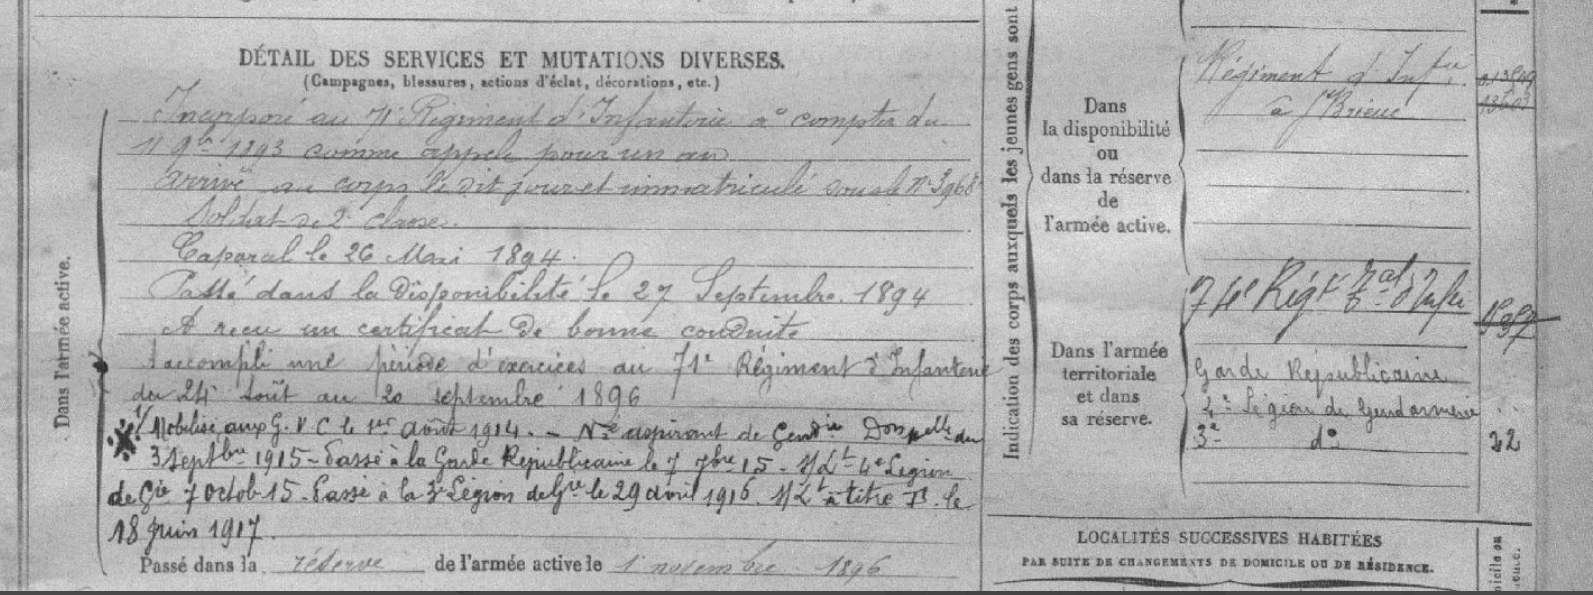 DÉTAIL DES SERVICES ET MUTATIONS DIVERSES.
(Campagnes, blessures, actions d'éclat, décorations, etc.)
Dans l'armée active.
Incorporé au 71e Régiment d'Infanterie à compter du
11 9bre 1893 comme appelé pour un an
arrivé au corps le dit jour et immatriculé sous le n° 3968
Soldat de 2e classe.
Caporal le 26 Mai 1894.
Passé dans la Disponibilité le 27 Septembre 1894
A reçu un certificat de bonne conduite
A accompli une période d'exercices au 71e Régiment d'Infanterie
du 24 août au 20 septembre 1896
1/ Mobilisé aux G.V.C le 1er août 1914. – Né aspirant de Gendie du
3 Septbre 1915 – Passé à la Garde Républicaine le 7 7bre 15 – S/Lt 4e Légion
de Gie 7 Octob 15. Passé à la 3e Légion de Gie le 29 avril 1916. S/Lt à titre le
18 Juin 1917.
Passé dans la réserve de l'armée active le 1 novembre 1896
Indication des corps auxquels les jeunes gens sont
Dans
la disponibilité
ou
dans la réserve
de
l'armée active.
Régiment d'Infie
à St Brieuc
Dans l'armée
territoriale
et dans
sa réserve.
74e Régt Tal d'Infie
Garde Républicaine
4e Légion de Gendarmerie
3e do 32
LOCALITÉS SUCCESSIVES HABITÉES
PAR SUITE DE CHANGEMENTS DE DOMICILE OU DE RÉSIDENCE.